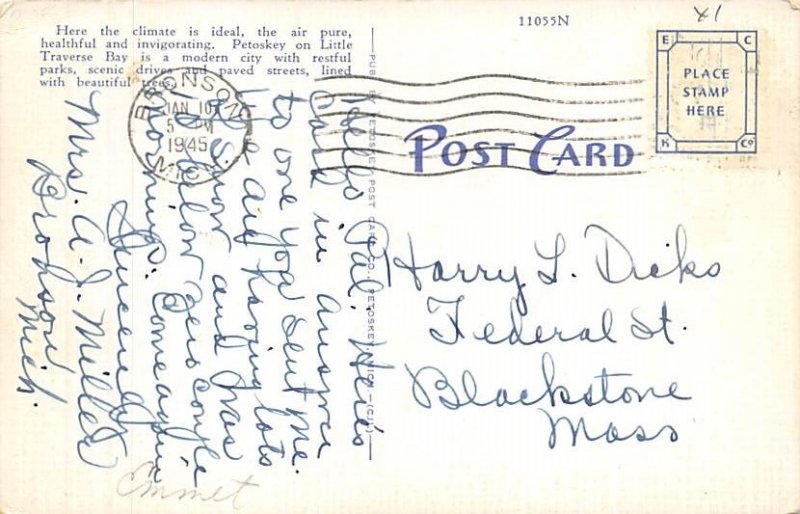 Here the climate is ideal, the air pure,
healthful and invigorating. Petoskey on Little
Traverse Bay is a modern city with restful
parks, scenic drives and paved streets, lined
with beautiful trees.
11055N
X1
E C
PLACE
STAMP
HERE
K Co
BRONSON
JAN 10
5 PM
1945
MICH
POST CARD
PUB. BY PETOSKEY POST CARD CO., PETOSKEY, MICH.
Hello Pal. Here's
card in answer
to one you sent me.
We are having lots
of snow and was
below zero couple
mornings. Come again
Sincerely
Mrs. A. J. Miller
Bronson,
Mich.
Harry L. Dicks
Federal St.
Blackstone
Mass
Emmet